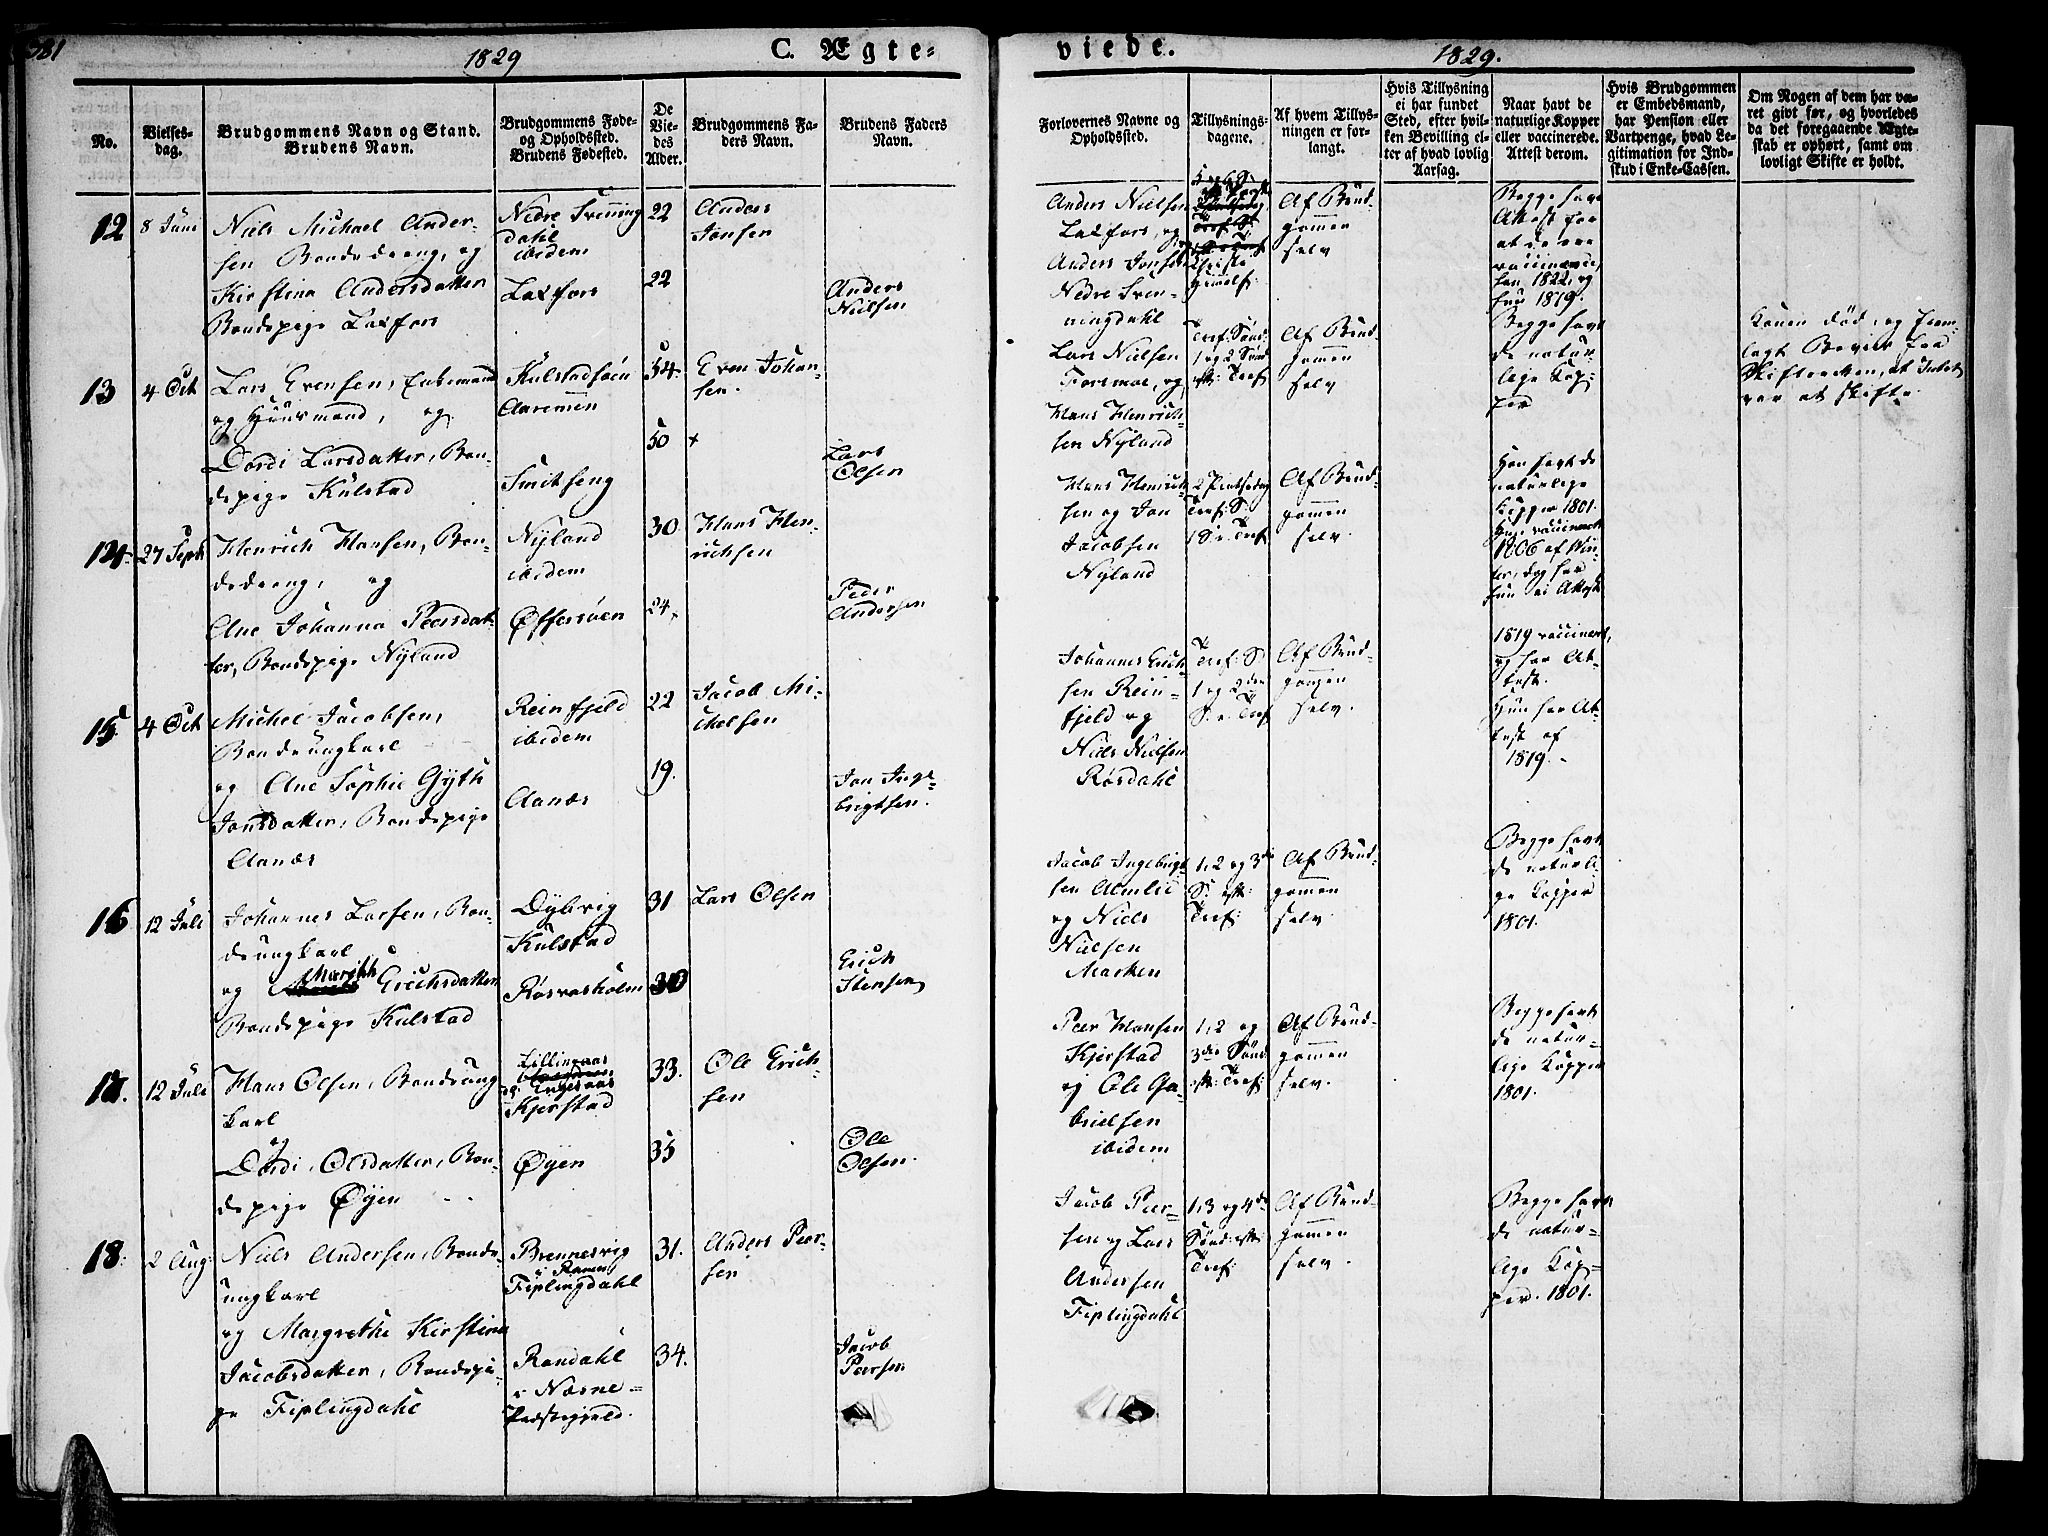 1829
C. Ægte=
viede.
1829.
No.
Vielses=
dag.
Brudgommens Navn og Stand.
Brudens Navn.
Brudgommens Føde=
og Opholdssted.
Brudens Fødested.
De
Vie=
des
Alder.
Brudgommens Fa=
ders Navn.
Brudens Faders
Navn.
Forlovernes Navne og
Opholdssted.
Tillysnings=
dagene.
Af hvem Tillys=
ningen er for=
langt.
Hvis Tillysning
ei har fundet
Sted, efter hvil=
ken Bevilling el=
ler af hvad lovlig
Aarsag.
Naar havt de
naturlige Kopper
eller vaccinerede.
Attest derom.
Hvis Brudgommen
er Embedsmand,
har Pension eller
Vartpenge, hvad Le=
gitimation for Ind=
skud i Enke=Cassen.
Om Nogen af dem har væ=
ret givt før, og hvorledes
da det foregaaende Ægte=
skab er ophørt, samt om
lovligt Skifte er holdt.
12
8 Juni
Niels Michael Ander=
sen Bondedreng, og
Kirstina Andersdatter
Bondepige Laxfors
Nedre Svenning
dahl
ibidem
Laxfors
22
22
Anders
Jonsen
Anders
Nielsen
Anders Nielsen
Laxfors, og
Anders Jonsen
Nedre Sven=
ningdahl
Af Brud=
gomen
selv
Begge have
Attest for
at være
vaccinerede,
han 1822, og
hun 1819.
13
4 Oct
Lars Evensen, Enkemand
og Huusmand, og
Dordi Larsdatter, Bon=
depige Kulstad
Kulstadsøen
Aaremen
Smitseng
54.
50
Even Johan=
sen.
Lars
Olsen
Lars Nielsen
Forsmoe, og
Hans Henrich=
sen Nyland
Tref: Sønd:
1 og 2 Sønd
eft: Tref
Af Brud=
gomen
selv
Begge havt
de natur=
lige Kop=
per
Konen død, og frem=
lagt Beviis fra
Skifteretten, at Intet
var at skifte
14.
27 Sept
Henrich Hansen, Bon=
dedreng, og
Ane Johanna Peersdat=
ter, Bondepige Nyland
Nyland
ibidem
Øffersøen
30
24
Hans Hen=
richsen
Peder
Andersen
Hans Henrich=
sen og Jon
Jacobsen
Nyland
2 Pintsedag
Tref: S:
1 S. e. Tref
Af Brud=
gomen
selv.
Han havt de
naturlige
Kopper 1801.
Hun vaccineret
1806 af Win=
ter, dog har
hun ei Attest
15
4 Oct
Michel Jacobsen,
Bondeungkarl
og Ane Sophie Gyth
Jonsdatter, Bondepige
Aanes
Reinfjeld
ibidem
Aanæs
22
19.
Jacob Mi=
chelsen
Jon Inge=
brigtsen.
Johannes Erich=
sen Rein=
fjeld og
Niels Nielsen
Røsdahl
Tref: S
1 og 2den
S. e. Tref
Af Brud=
gomen
selv.
1819 vaccineret,
og har At=
test.
Hun har At=
test af
1819.
16
12 Juli
Johannes Larsen, Bon=
deungkarl
og Marith Erichsdatter
Bondepige Kulstad
Dybvig
Kulstad
Røsvasholm
31
30
Lars Olsen
Erich
Stensen
Jacob Ingebrigt
sen Almlie
og Niels
Nielsen
Marken
1, 2 og 3die
S: eft:
Tref:
Af Brud=
gomen
selv.
Begge havt
de naturli=
ge Kopper
1801.
17.
12 Juli
Hans Olsen, Bondeung
karl
og
Dordi Olsdatter, Bon=
depige Øyen
Kjerstad
Øyen
33.
35
Ole Erich=
sen
Ole
Olsen.
Peer Hansen
Kjerstad
og Ole Ga=
brielsen
ibidem
1, 2 og
3die Sønd
eft: Tref:
Af Brud=
gomen
selv.
Begge havt
de natur=
lige Kopper
1801.
18.
2 Aug
Niels Andersen, Bonde
ungkarl
og Margrethe Kirstina
Jacobsdatter, Bondepi=
ge Fiplingdahl
Brennesvig
i Ranen
Fiplingdahl
Randahl
i Næsne=
Præstegjeld.
31.
34.
Anders Peer=
sen
Jacob
Peersen
Jacob Peer=
sen og Lars
Andersen
Fiplingdahl
1, 3 og 4de
Sønd: eft:
Tref:
Af Brud=
gomen
selv.
Begge havt
de natur=
lige Kop=
per. 1801.